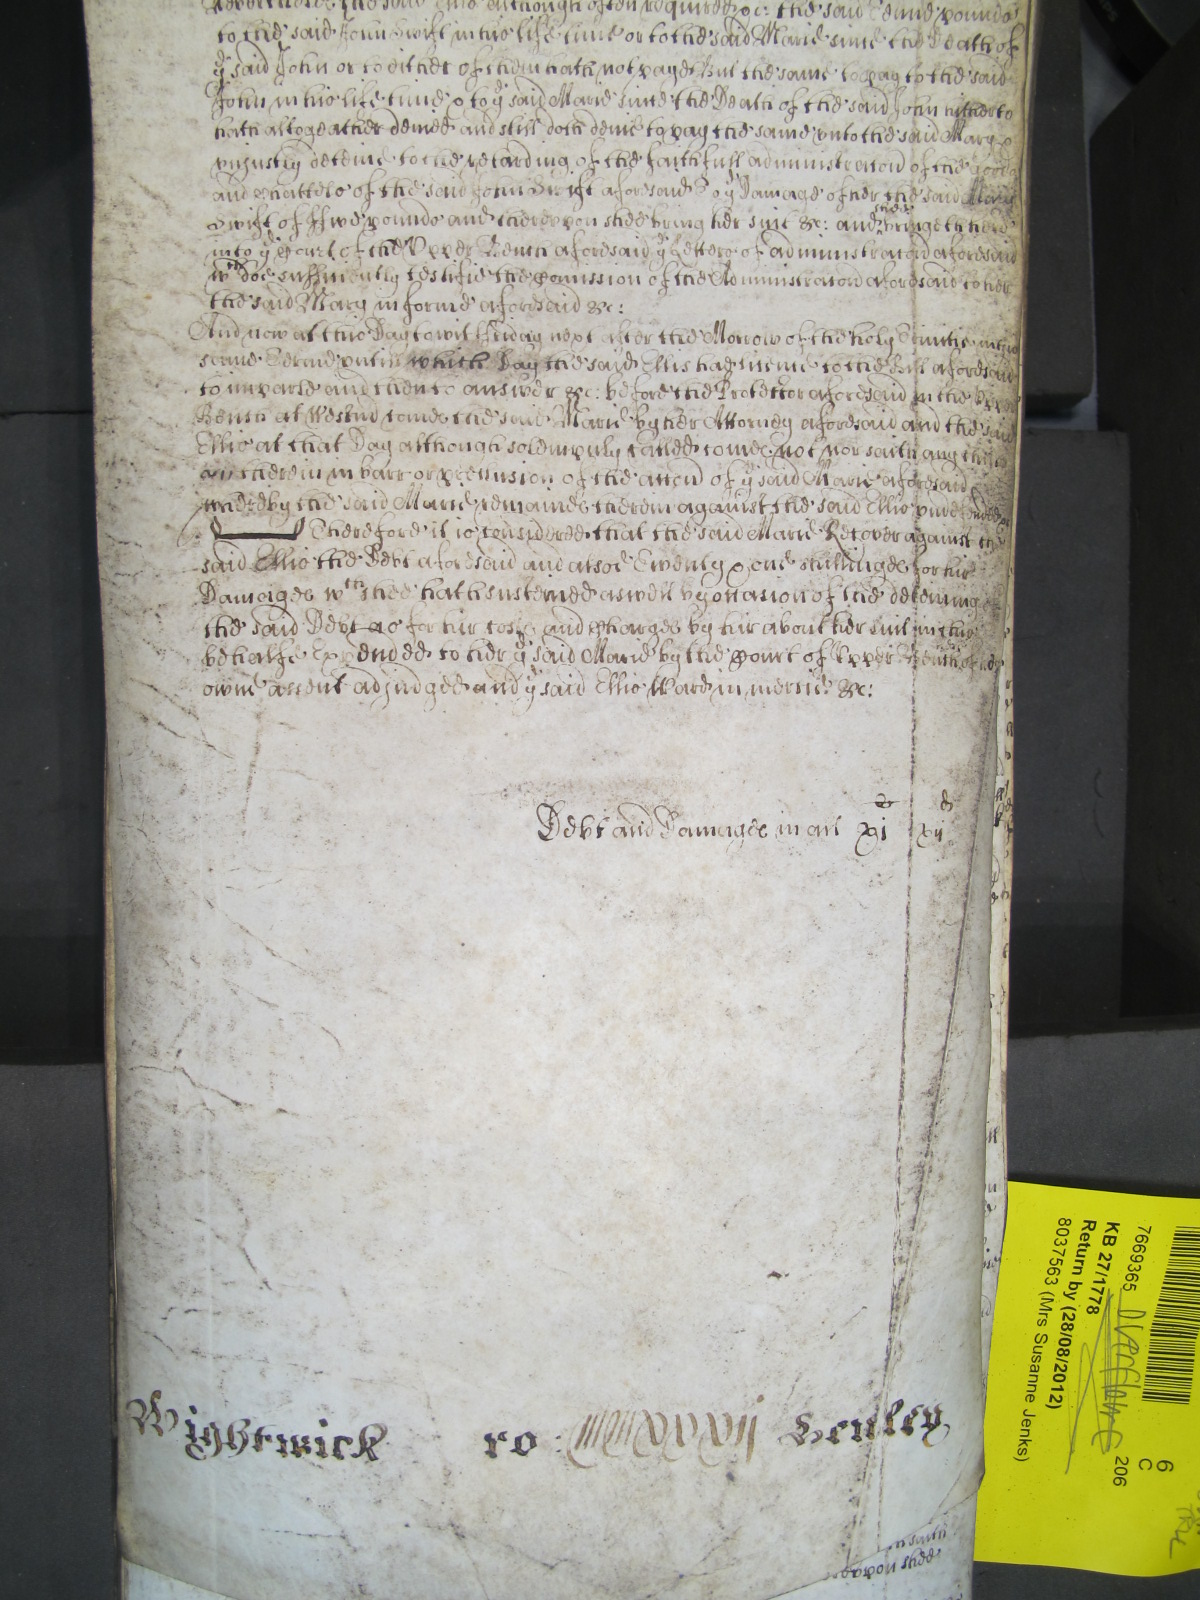 Neverthelesse the said Ellis although often required &c: the said Tenne pounds
to the said John Swift in his life time or to the said Marie since the Death of
ye said John or to either of them hath not paye But the same to pay to the said
John in his life time & to ye said Marie since the Death of the said John hitherto
hath altogeather denied and still doth denie to pay the same unto the said Mary &
uniustly deteine to the retarding of the faithfull administracon of the goods
and Chattels of the said John Swift aforesaid To ye Damage of her the said Mary
Swift of ffive pounds and thereupon shee bring her suit &c: and shee bringeth here
into ye Court of the Upper Bench aforesaid ye Letters of administracon aforesaid
wch doe sufficiently testifie the Comission of the Administracon aforesaid to her
the said Mary in forme aforesaid &c:
And now at this Day to wit Friday next after the Morrow of the holy Trinitie in this
same Terme untill which Day the said Ellis had licence to the Bill aforesaid
to imparle and then to answer &c: before the Protector aforesaid in the Upper
Bench at Westmr comes the said Marie by her Attorney aforesaid and the said
Ellis at that Day although solempnly called comes not nor saith any thing
in barr or preclusion of the accon of ye said Marie aforesaid
whereby the said Marie remaines therein against the said Ellis undefended
Therefore it is considered that the said Marie Recover against the
said Ellis the Debt aforesaid and alsoe Twenty & one shillinges for hir
Damages wch shee hath susteined aswell by occasion of the deteining
the said Debt as for hir costs and Charges by hir about her suit in this
behalfe Expended to her ye said Marie by the Court of Upper Bench of her
owne assent adjudged and ye said Ellis Ward in mercie &c:
Debt and Damages in all xj li xij d
Wightwick ro: Henley
7669365
KB 27/1778
Return by (28/08/2012)
8037563 (Mrs Susanne Jenks)
206
6
C